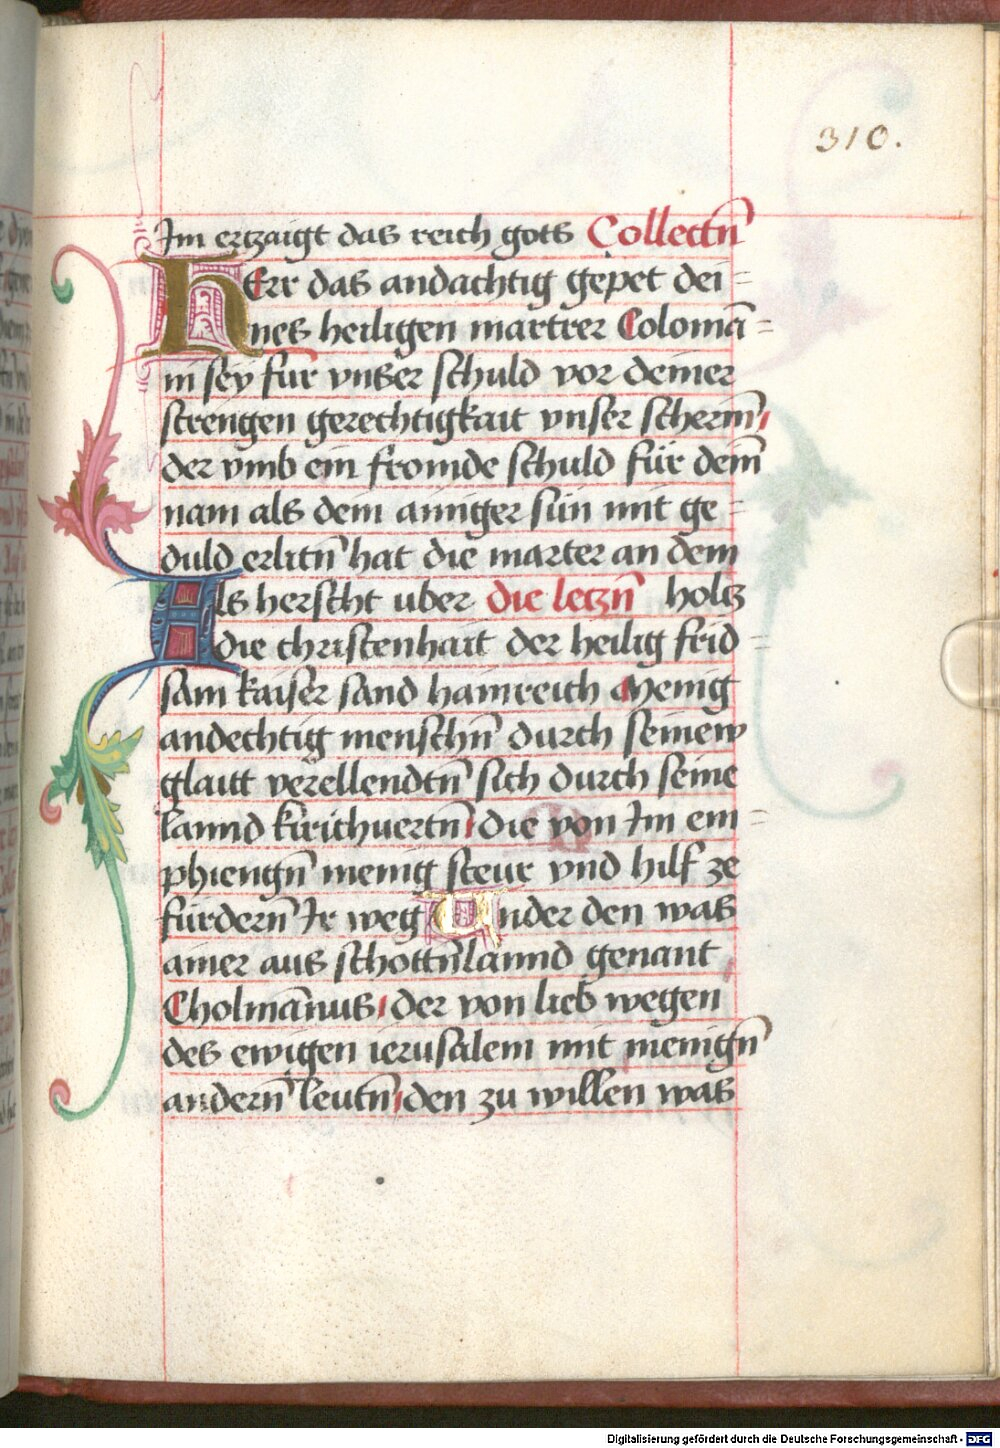 310.
Im ertzaigt das reich gots Collectn̄
HErr das andachtig gepet dei=
nes heiligen martrer Colomā=
ni sey fur vnser schuld vor deiner
strengen gerechtigkait vnser scherm̄
der vmb ein fromde schuld für dein̄
nam als dein ainiger sün mit ge=
duld erlitn̄ hat die marter an dem
Als herscht uber die leczn̄ holcz
die christenhait der heilig frid=
sam kaiser sand hainreich Menig
andechtig menschn̄ durch seinew
glaitt verellendtn̄ sich durch seine
lannd kirichuertn̄ die von Im em=
phiengn̄ menig steur vnd hilf ze
fürdern̄ Ir weg Under den was
ainer aus schottn̄lannd genant
Cholmānus der von lieb wegen
des ewigen ierusalem mit menign̄
andern̄ leutn̄ den zu willen was
Digitalisierung gefördert durch die Deutsche Forschungsgemeinschaft - DFG